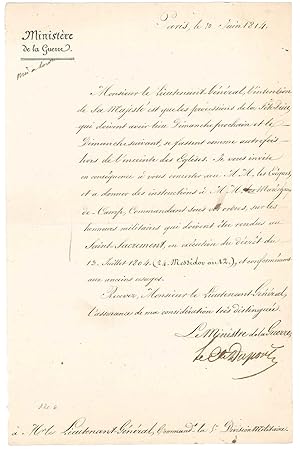 Paris, le Juin 1814.
Ministère
de la Guerre.
Monsieur le Lieutenant Général, l'intention
de Sa Majesté est que les processions de la Fête Dieu,
qui doivent avoir lieu Dimanche prochain et le
Dimanche suivant, se fassent comme autrefois
hors de l'enceinte des Eglises. Je vous invite
en conséquence à vous concerter avec M.M. les Evêques,
et à donner des instructions à M.M. les Maréchaux
de Camp, Commandant sous vos ordres, sur les
honneurs militaires qui doivent être rendus au
Saint Sacrement, en exécution du décret du
13. Juillet 1804 (24. Messidor an 12.), et conformément
aux anciens usages.
Recevez, Monsieur le Lieutenant Général,
l'assurance de ma considération très distinguée.
Le Ministre de la Guerre,
le Cte Dupont
à Mr le Lieutenant Général, Command. la 5e Division Militaire.